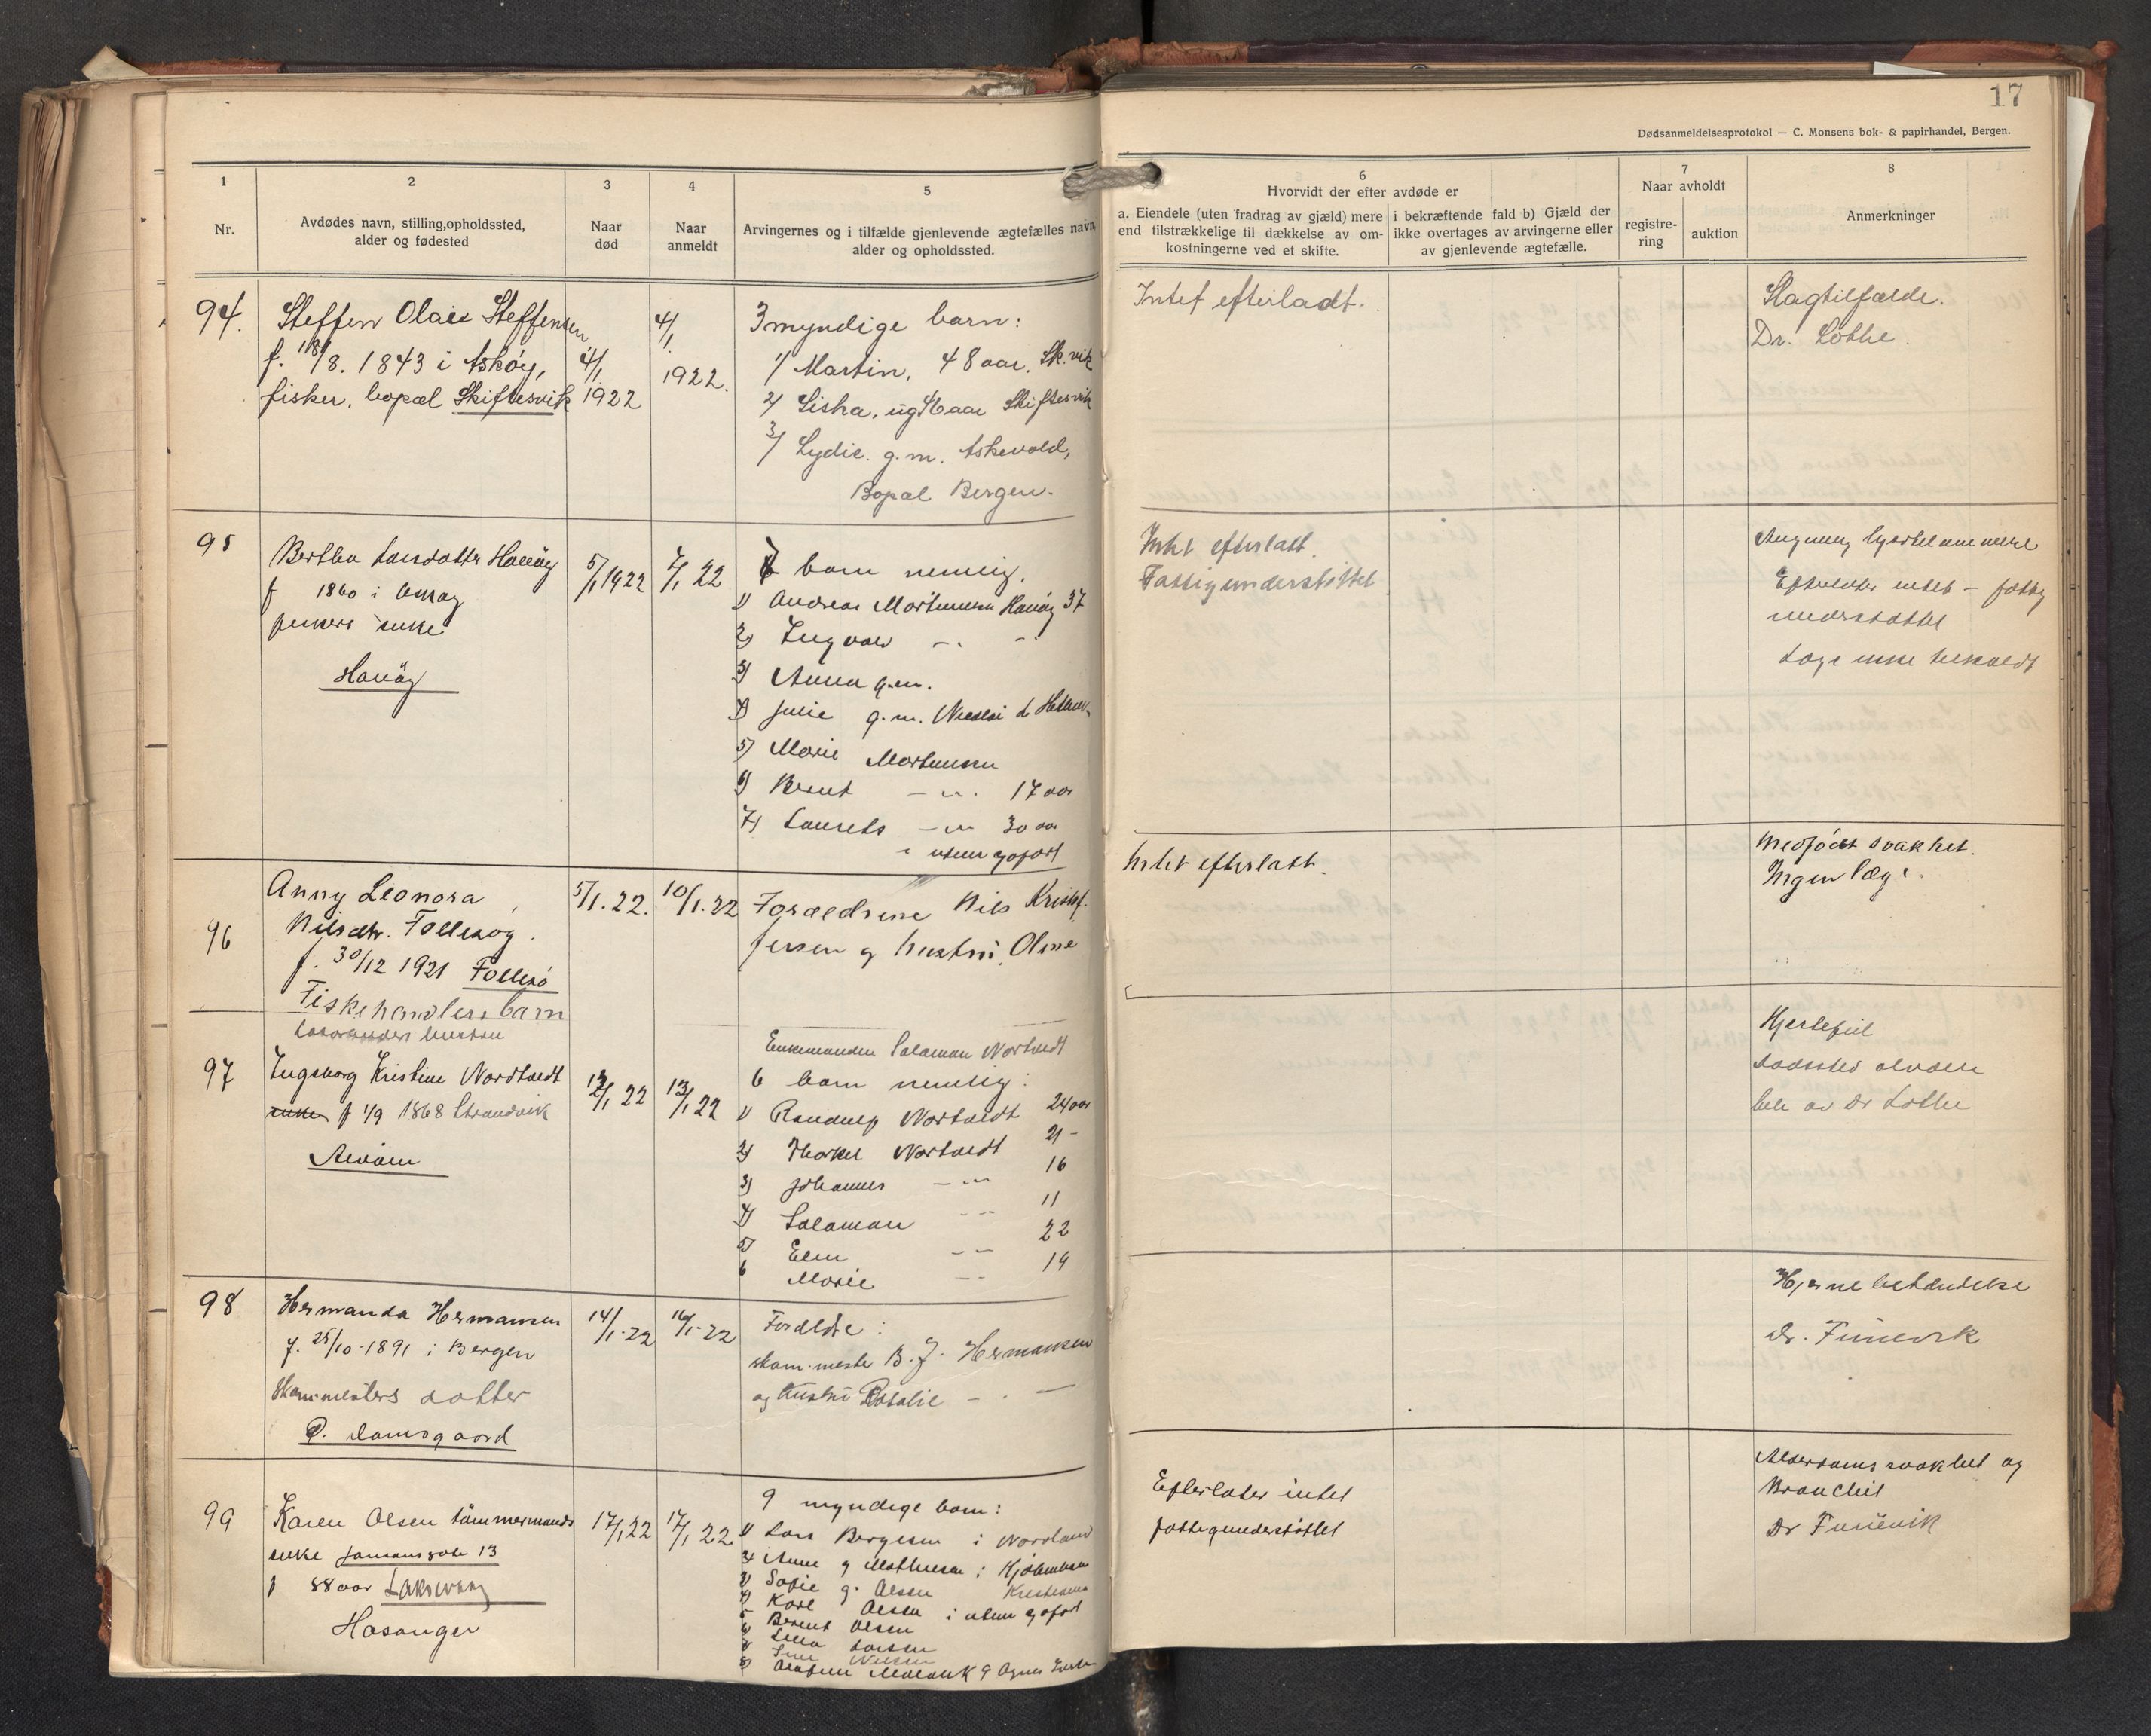 17
Dødsanmeldelsesprotokol — C. Monsens bok- & papirhandel, Bergen.
1
Nr.
2
Avdødes navn, stilling, opholdssted,
alder og fødested
3
Naar
død
4
Naar
anmeldt
5
Arvingernes og i tilfælde gjenlevende ægtefælles navn,
alder og opholdssted.
6
Hvorvidt der efter avdøde er
a. Eiendele (uten fradrag av gjæld) mere
end tilstrækkelige til dækkelse av om-
kostningerne ved et skifte.
i bekræftende fald b) Gjæld der
ikke overtages av arvingerne eller
av gjenlevende ægtefælle.
7
Naar avholdt
registre-
ring
auktion
8
Anmerkninger
94.
Steffen Olai Steffensen
f. 18/8. 1843 i Askøy,
fisker, bopæl Skiftesvik
4/1
1922
4/1
1922.
3 myndige barn:
1/ Martin, 48 aar, Sk.vik
2/ Liska, ug. aar Skiftesvik
3/ Lydie. g.m. Askevold,
Bopæl Bergen.
Intet efterladt.
Slagtilfælde.
Dr. Lothe.
95
Bertha Larsdatter Hanøy
f 1860 i Askøy
fiskers enke
Hanøy
5/1 1922
7/1 22
7 barn nemlig.
1) Andreas Mortensen Hanøy 37
2) Ingvald -"- -"-
3) Anna g.m.
4) Julie g.m. Nicolai
5) Marie Mortensen
6) Bernt -"- 17 aar
7) Laurits -"- 30 aar
i utenriksfart
Intet efterlatt.
Fattigunderstøttet
Efterlater intet - fattig
understøttet
Læge ikke tilkaldt
96
Anny Leonora
Nilsdtr. Follesøy.
f. 30/12 1921 Follesø
Fiskehandlers barn
5/1. 22.
10/1. 22
Forældrene Nils Kristof-
fersen og hustru Oline
Intet efterlatt.
Medfødt svakhet.
Ingen læge.
97
hustru
Ingeborg Kristine Nordtvedt
enke f 1/9 1868 Strandvik
Alvøen
12/1 22
13/1 22
Enkemanden Salamon Nortvedt
6 barn nemlig:
1) Nortvedt 24 aar
2) Thorkel Nortvedt 21 -
3) Johannes -"- 16
4) Salamon -"- 11
5) Elen -"- 22
6 Marie -"- 19
Hjertefeil
Dødssted Alvøen
beh av Dr Lothe
98
Hermanda Hermansen
f. 25/10-1891 i Bergen
datter
D. Damsgaard
14/1-22
16/1-22
Forældre:
B. J. Hermansen
og hustru Rosalie - " -
Hjernebetændelse
Dr. Funevik
99
Karen Olsen tømmermands
enke Jansonsgate 13
f 88 aar Laksevaag
Hosanger
17/1 22
17/1 22
9 myndige barn:
1) Lars Bergesen i Nordland
2) Anne g Mathiesen i Kjøbenhavn
3) Sofie g. Olsen Kristiania
4) Karl Olsen i utenriksfart
5 Bernt Olsen
6) Lena Larsen
7) Nilsen
8) g Agnes
Efterlater intet
fattigunderstøttet
Alderdomssvakhet og
Bronchit
Dr Funevik